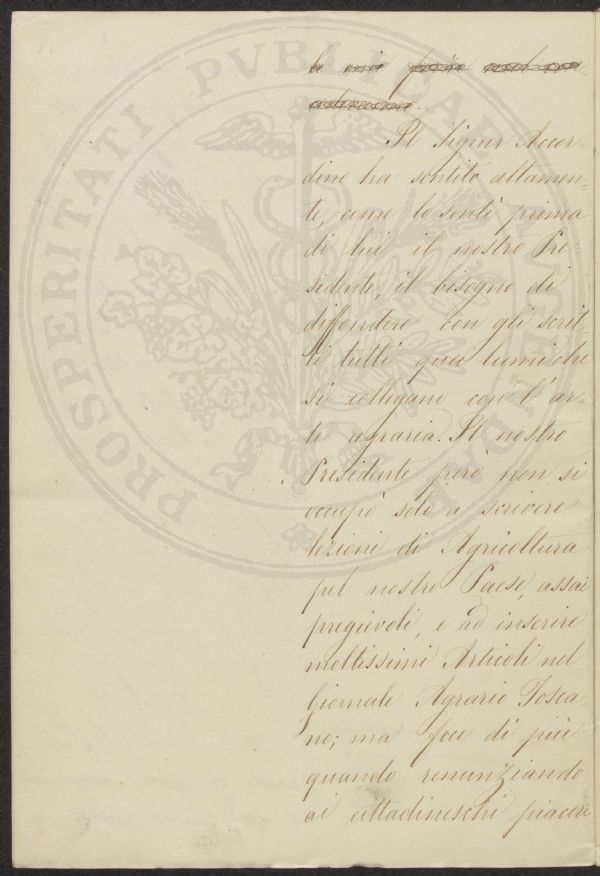 Il Signor Accor-
dino ha sentito altamen-
te, come lo sentì prima
di lui il nostro Pre-
sidente, il bisogno di
diffondere con gli scrit-
ti tutti quei lumi che
si collegano con l'ar-
te agraria. Il nostro
Presidente però non si
occupò solo a scrivere
lezioni di Agricoltura
pel nostro Paese, assai
pregievoli, e ad inserire
moltissimi Articoli nel
Giornale Agrario Tosca-
no; ma fece di più
quando renunziando
ai cittadineschi piaceri
PROSPERITATI PVBLICAE AVGENDAE